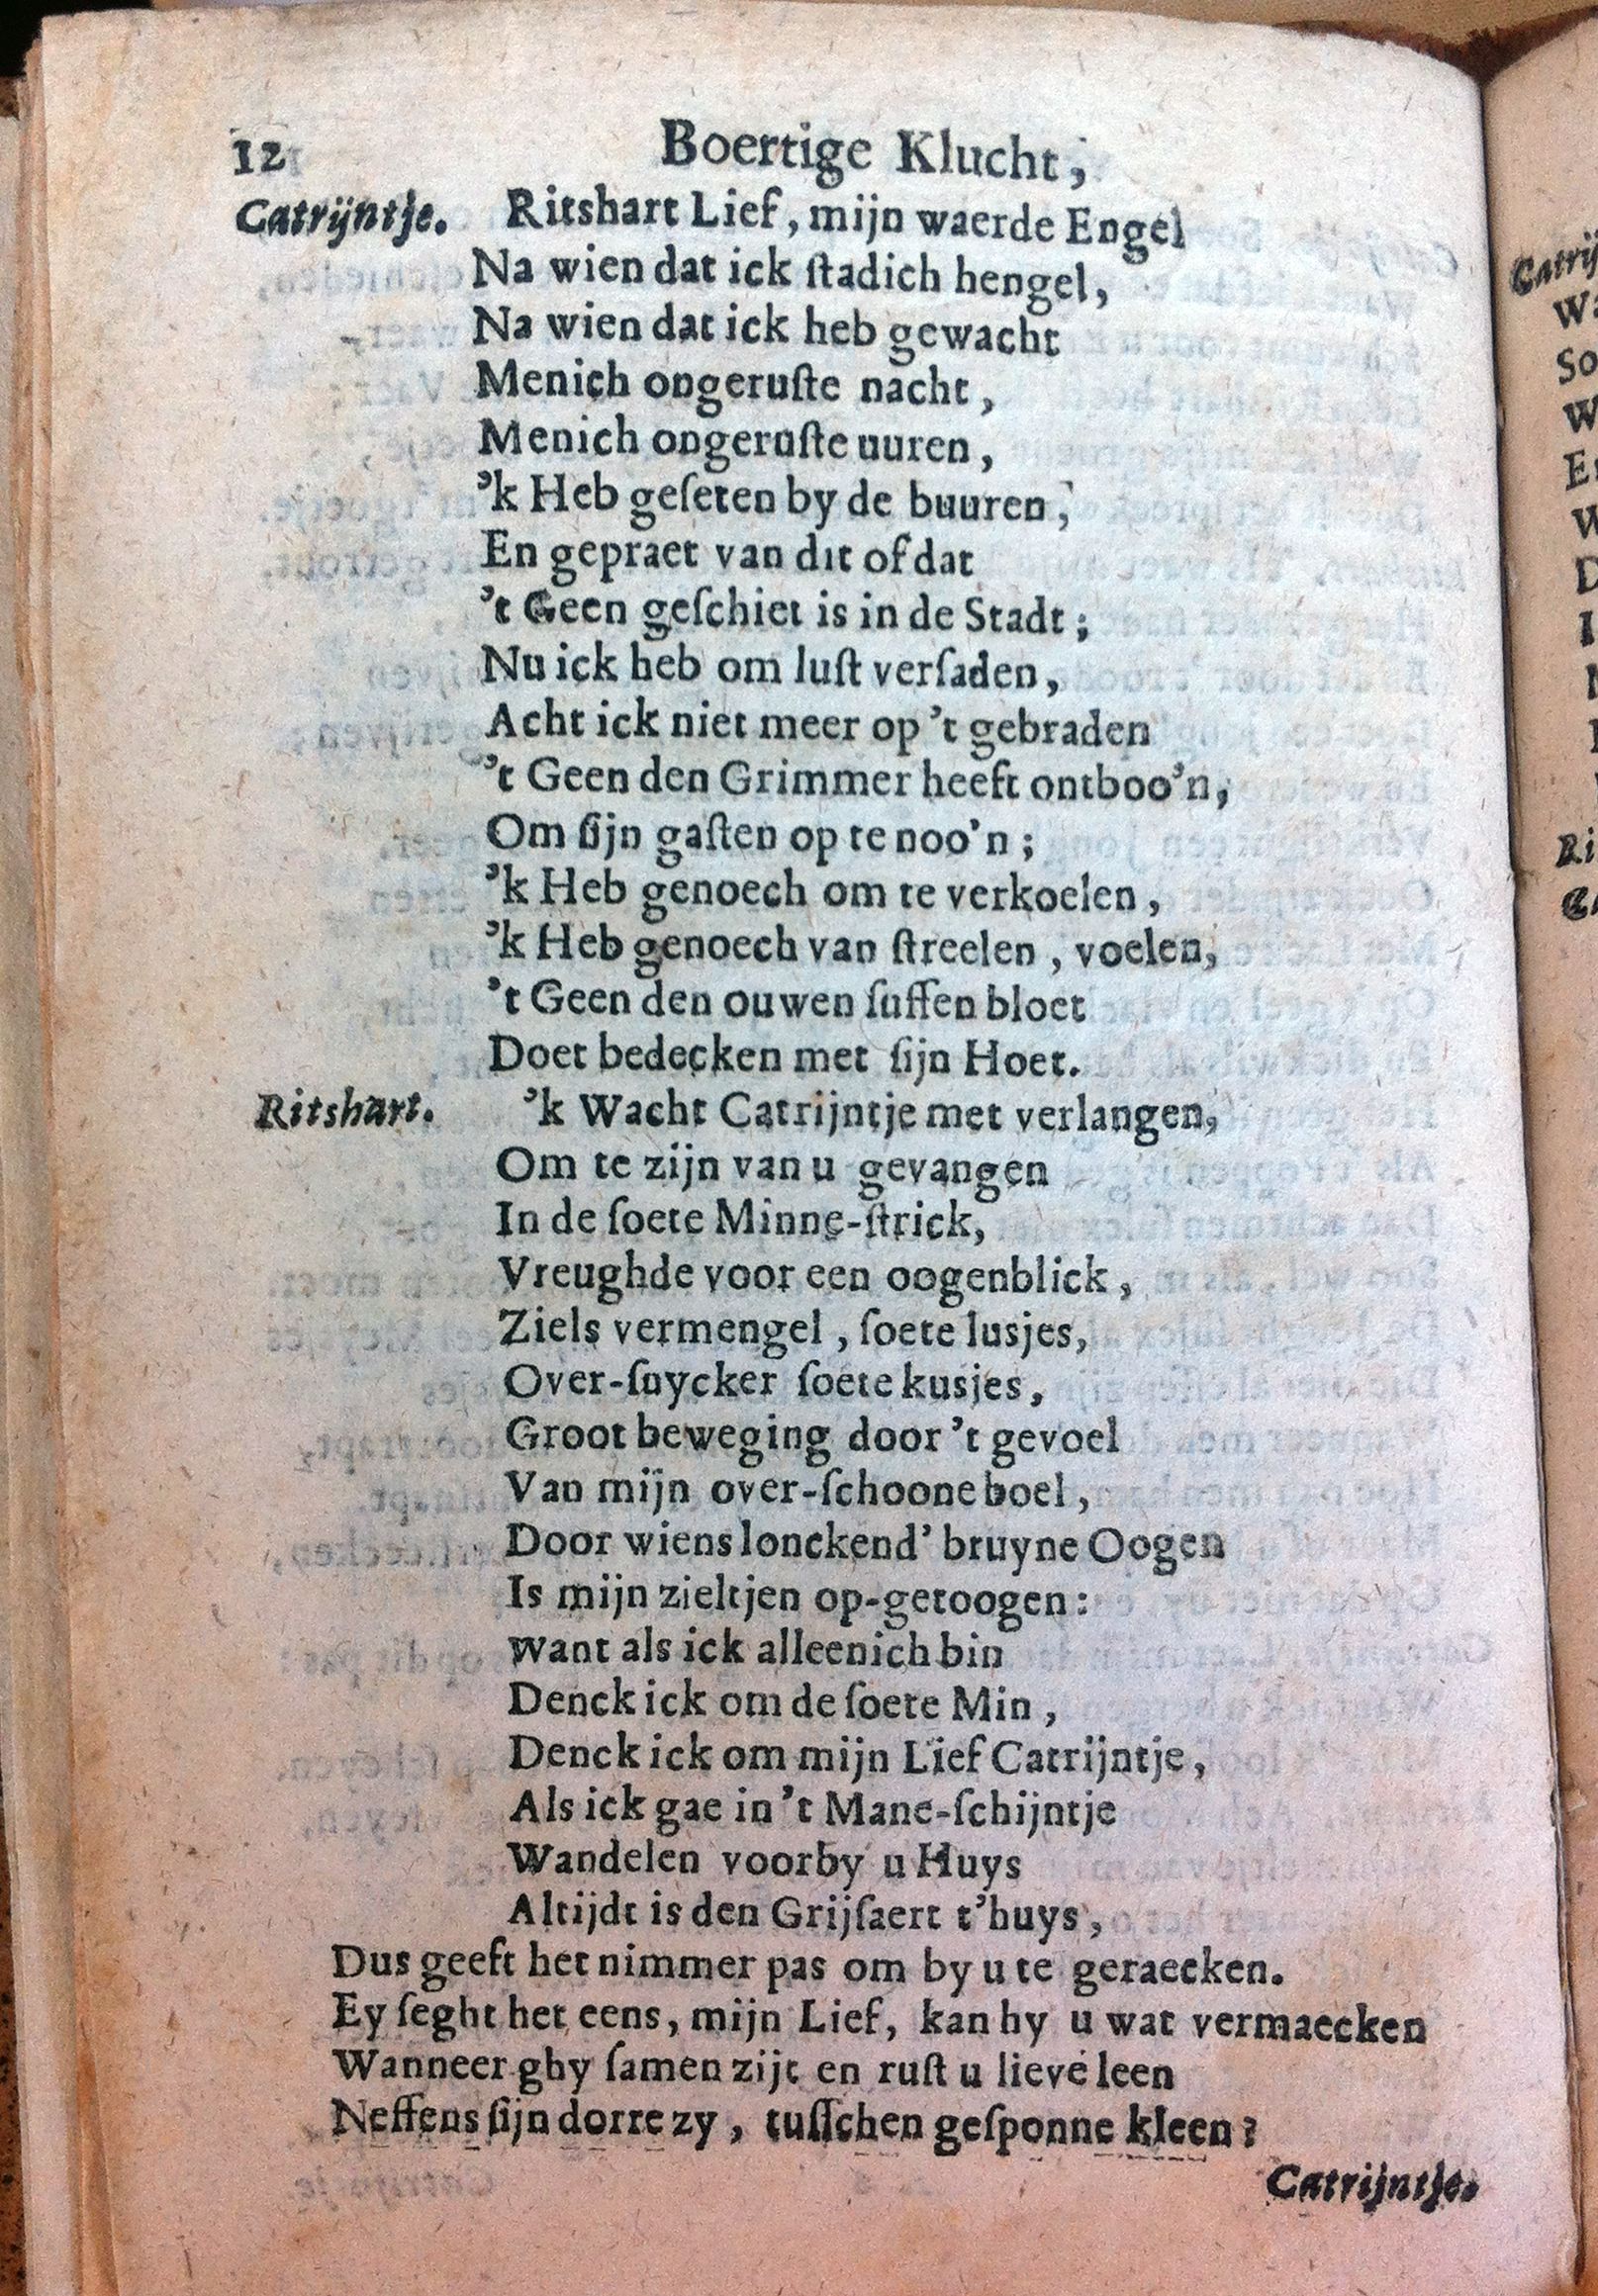 12 Boertige Klucht,
Catrijntje. Ritshart Lief, mijn waerde Engel
Na wien dat ick ſtadich hengel,
Na wien dat ick heb gewacht
Menich ongeruſte nacht,
Menich ongeruſte uuren,
’k Heb geſeten by de buuren,
En gepraet van dit of dat
’t Geen geſchiet is in de Stadt;
Nu ick heb om luſt verſaden,
Acht ick niet meer op ’t gebraden
’t Geen den Grimmer heeft ontboo’n,
Om ſijn gaſten op te noo’n;
’k Heb genoech om te verkoelen,
’k Heb genoech van ſtreelen, voelen,
’t Geen den ouwen ſuffen bloet
Doet bedecken met ſijn Hoet.
Ritshart. ’k Wacht Catrijntje met verlangen,
Om te zijn van u gevangen
In de ſoete Minne-ſtrick,
Vreughde voor een oogenblick,
Ziels vermengel, ſoete lusjes,
Over-ſuycker ſoete kusjes,
Groot beweging door ’t gevoel
Van mijn over-ſchoone boel,
Door wiens lonckend’ bruyne Oogen
Is mijn zieltjen op-getoogen:
Want als ick alleenich bin
Denck ick om de ſoete Min,
Denck ick om mijn Lief Catrijntje,
Als ick gae in ’t Mane-ſchijntje
Wandelen voorby u Huys
Altijdt is den Grijſaert t’huys,
Dus geeft het nimmer pas om by u te geraecken.
Ey ſeght het eens, mijn Lief, kan hy u wat vermaecken
Wanneer ghy ſamen zijt en ruſt u lieve leen
Neffens ſijn dorre zy, tuſſchen geſponne kleen?
Catrijntje.
Catrij
Wa
So
W
E
W
D
I
Ri